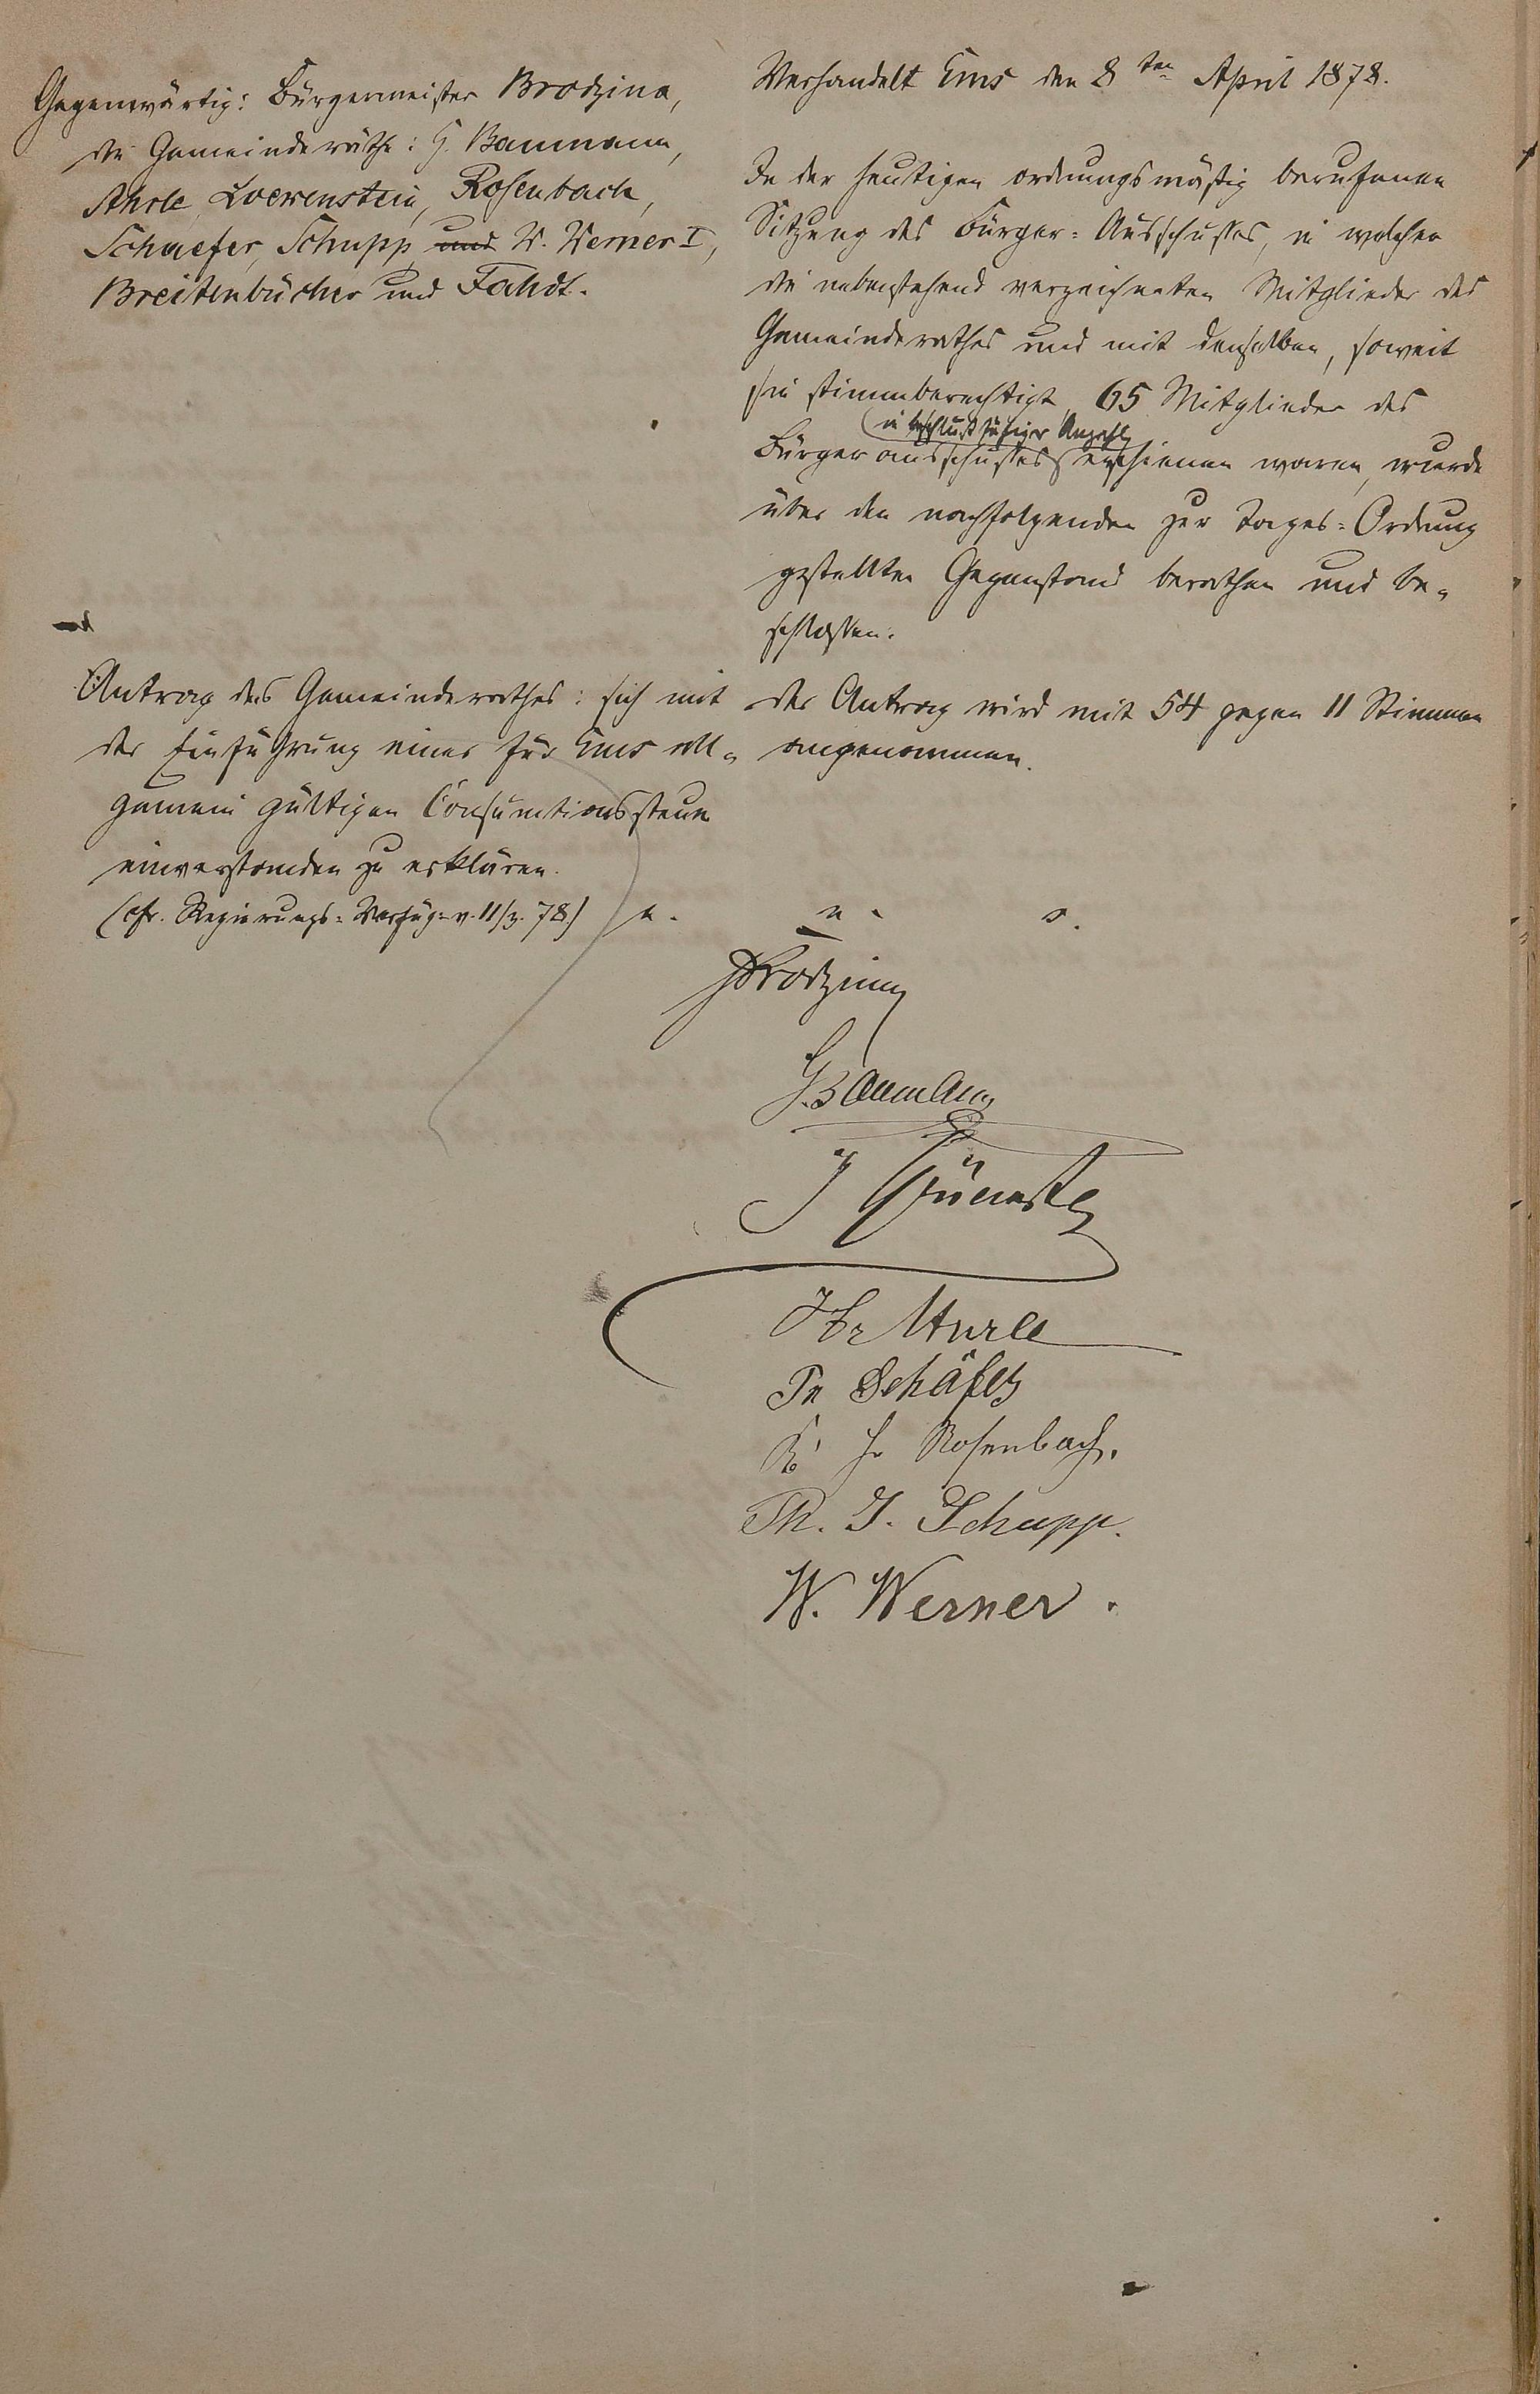 Gegenwärtig: Bürgermeister Brodzina,
die Gemeinderäthe: H. Baumann,
Loewenstein, Rosenbach,
Schaefer, Schupp, und W. Werner I,
Breitenbücher und Fahdt.
Verhandelt Ems den 8ten April 1878.
In der heutigen ordnungsmäßig berufenen
Sitzung des Bürger=Ausschusses, in welcher
die nebenstehend verzeichneten Mitglieder des
Gemeinderathes und mit denselben, soweit
sie stimmberechtigt, 65 Mitglieder des
in beschlußfähiger Anzahl
Bürgerausschusses erschienen waren, wurde
über den nachfolgenden zur Tages=Ordnung
gestellten Gegenstand berathen und be=
schlossen.
Antrag des Gemeinderathes: sich mit
der Einführung einer für Ems all=
gemein gültigen Consumtionssteuer
einverstanden zu erklären.
(cfr. Regierungs=Verfüg. v. 11/3. 78.)
Der Antrag wird mit 54 gegen 11 Stimmen
angenommen.
a. u. s.
Brodzina
H. Baumann
Fr Schäfer
Rosenbach.
Ph. J. Schupp.
W. Werner.